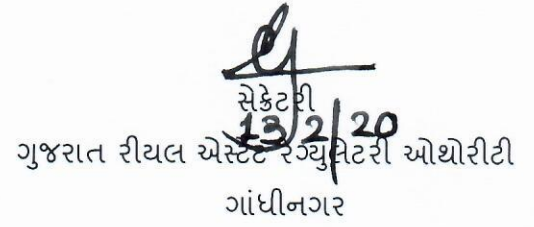 સેક્રેટરી
13/2/20
ગુજરાત રીયલ એસ્ટેટ રેગ્યુલેટરી ઓથોરીટી
ગાંધીનગર